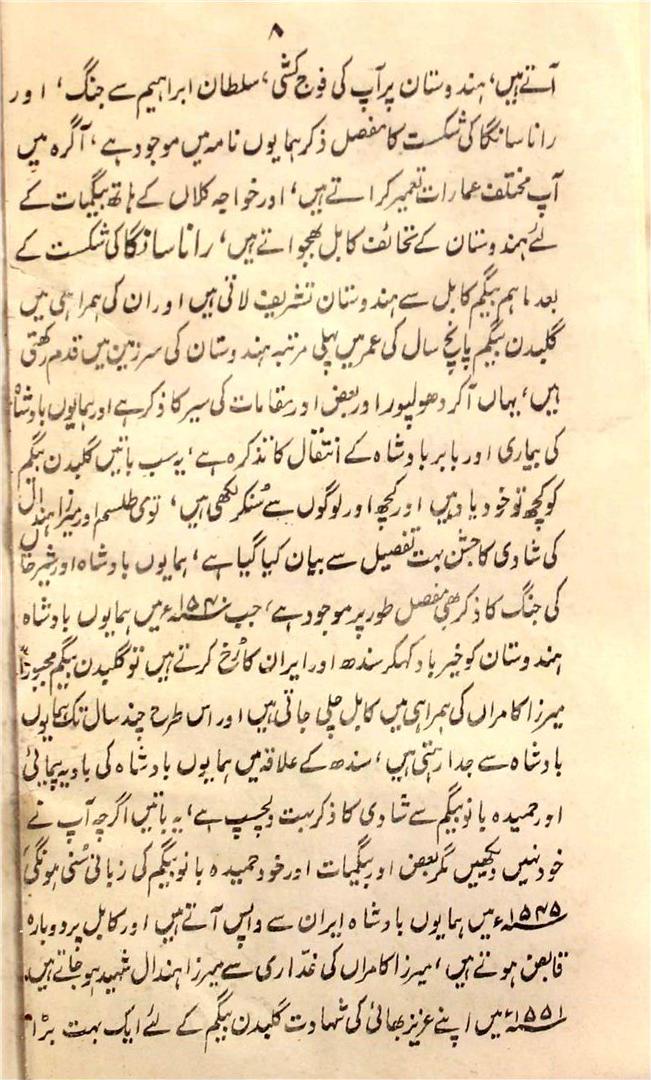 ۸
آتے ہیں، ہندوستان پر آپ کی فوج کشی، سلطان ابراہیم سے جنگ، اور
رانا سانگا کی شکست کا مفصل ذکر ہمایوں نامہ میں موجود ہے، آگرہ میں
آپ مختلف عمارات تعمیر کراتے ہیں، اور خواجہ کلاں کے ہاتھ بیگمات کے
لئے ہندوستان کے تحائف کابل بھجواتے ہیں، رانا سانگا کی شکست کے
بعد ماہم بیگم کابل سے ہندوستان تشریف لاتی ہیں اور ان کی ہمراہی میں
گلبدن بیگم پانچ سال کی عمر میں پہلی مرتبہ ہندوستان کی سرزمین میں قدم رکھتی
ہیں، یہاں آکر دھولپور اور بعض اور مقامات کی سیر کا ذکر ہے اور ہمایوں بادشاہ
کی بیماری اور بابر بادشاہ کے انتقال کا تذکرہ ہے، یہ سب باتیں گلبدن بیگم
کو کچھ تو خود یاد ہیں اور کچھ اور لوگوں سے سُنکر لکھی ہیں، توی طلسم اور میرزا ہندال
کی شادی کا جشن بہت تفصیل سے بیان کیا گیا ہے، ہمایوں بادشاہ اور شیر خاں
کی جنگ کا ذکر بھی مفصل طور پر موجود ہے، جب ۱۵۴۰ء میں ہمایوں بادشاہ
ہندوستان کو خیرباد کہکر سندھ اور ایران کا رُخ کرتے ہیں تو گلبدن بیگم مجبوراً
میرزا کامراں کی ہمراہی میں کابل چلی جاتی ہیں اور اس طرح چند سال تک ہمایوں
بادشاہ سے جدا رہتی ہیں، سندھ کے علاقہ میں ہمایوں بادشاہ کی بادیہ پیمائی
اور حمیدہ بانو بیگم سے شادی کا ذکر بہت دلچسپ ہے، یہ باتیں اگرچہ آپ نے
خود نہیں دیکھیں مگر بعض اور بیگمات اور خود حمیدہ بانو بیگم کی زبانی سُنی ہونگی،
۱۵۴۵ء میں ہمایوں بادشاہ ایران سے واپس آتے ہیں اور کابل پر دوبارہ
قابض ہوتے ہیں، میرزا کامراں کی غدّاری سے میرزا ہندال شہید ہو جاتے ہیں۔
۱۵۵۱ء میں اپنے عزیز بھائی کی شہادت گلبدن بیگم کے لئے ایک بہت بڑا